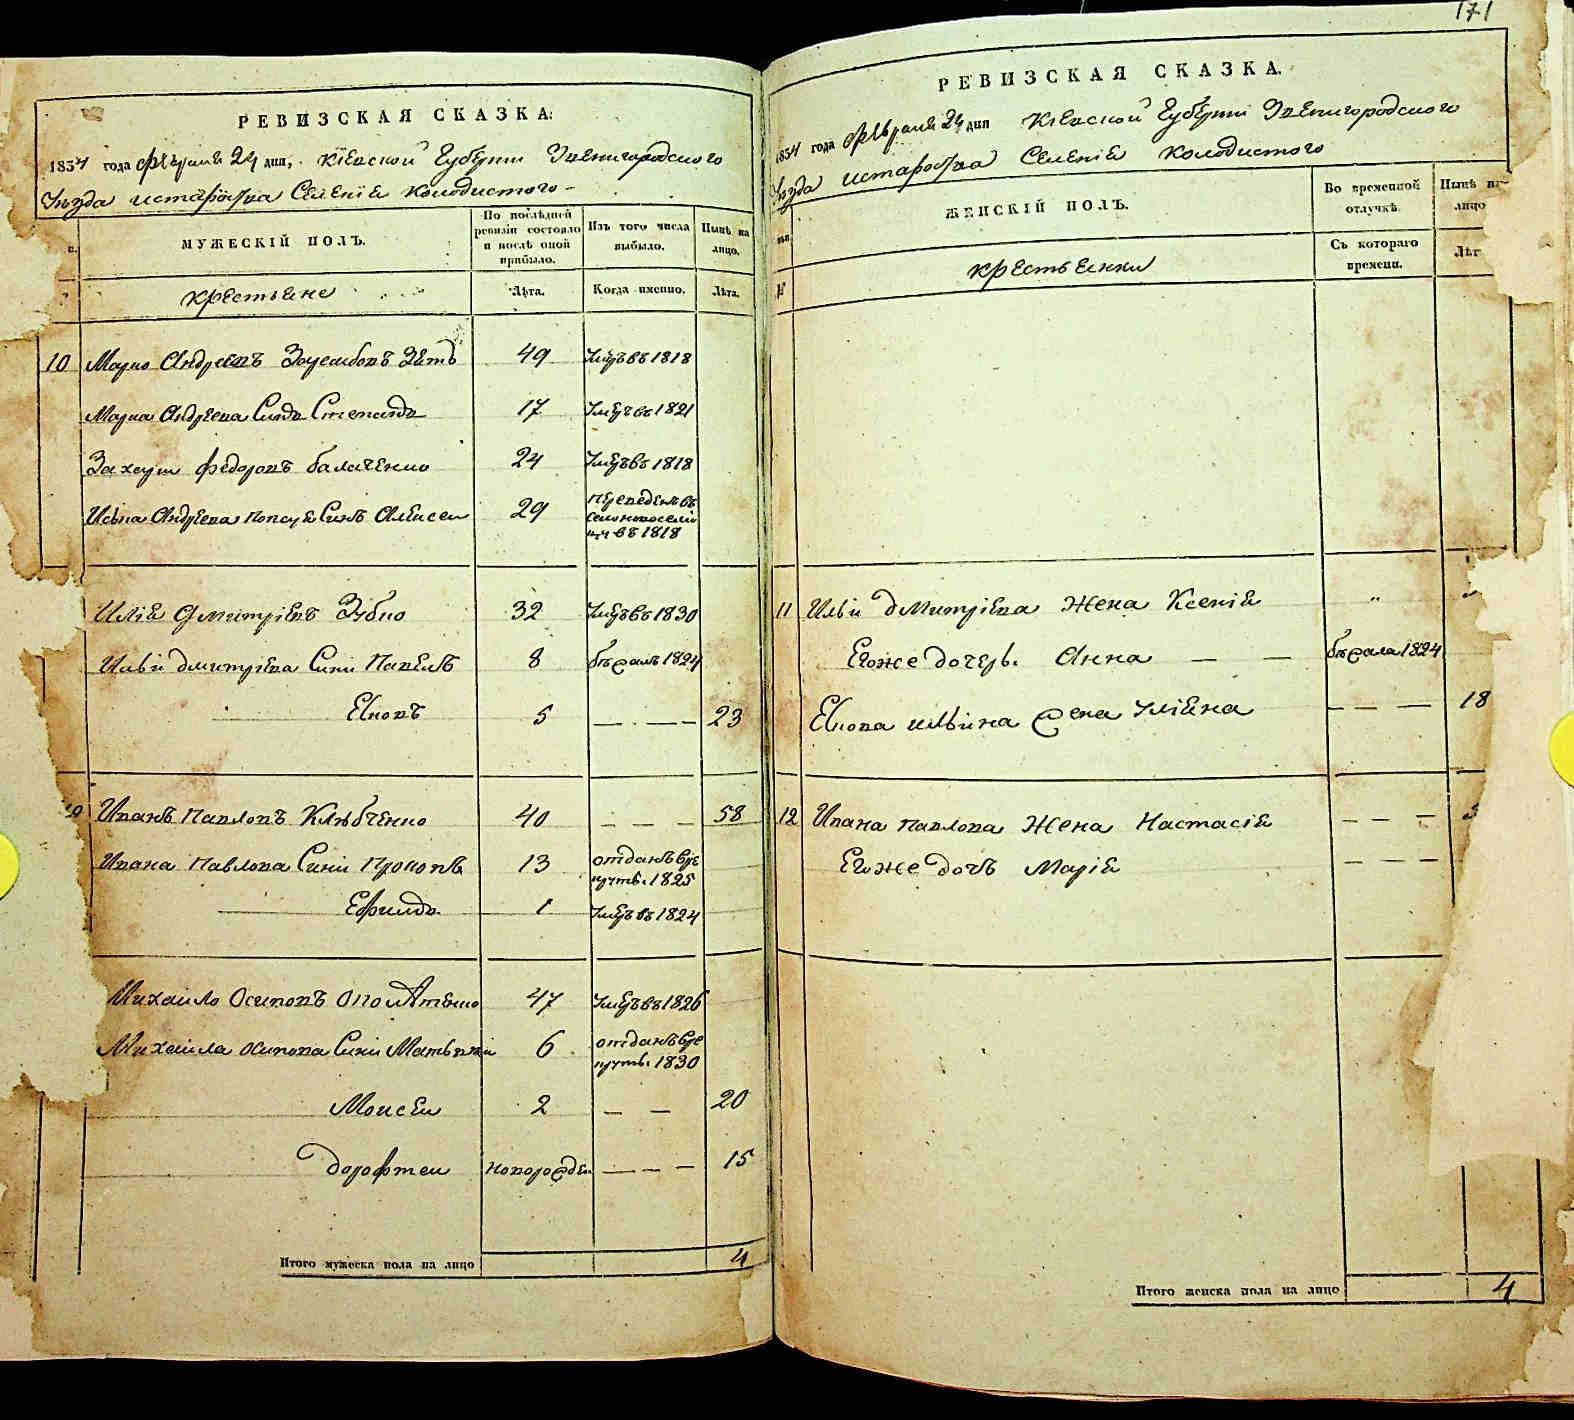 171
РЕВИЗСКАЯ СКАЗКА.
1834 года Февраля 24 дня, Кіевской Губерніи Звенигородского
Уѣзда и староства Селенія Колодистого
п.
МУЖЕСКІЙ ПОЛЪ.
По послѣдней ревизіи состояло и послѣ оной прибыло.
Изъ того числа выбыло.
Нынѣ на лицо.
крестьяне
Лѣта.
Когда именно.
Лѣта.
10 Марко Андреевъ зять 49 Умеръ въ 1818
Марка Андреева Синъ Степанъ 17 Умеръ въ 1821
Федоровъ 24 Умеръ въ 1818
Андреева Синъ Алексей 29 Переведенъ въ
село
въ 1818
Илія Дмитріевъ Зубко 32 Умеръ въ 1830
Ильи Дмитріева Сини Павелъ 8 бѣжалъ 1824
Яковъ 5 — — — 23
Иванъ Павловъ Клѣбченко 40 — — — 58
Ивана Павлова Сини Прокопъ 13 отданъ въ ре
круты 1825
Ефимъ 1 Умеръ въ 1824
Михайло Осиповъ 47 Умеръ въ 1826
Михайла Осипова Сини Матвей 6 отданъ въ ре
круты 1830
Моисей 2 — — 20
Дорофтей новорожден — — — 15
Итого мужеска пола на лицо 4
РЕВИЗСКАЯ СКАЗКА.
1834 года Февраля 24 дня Кіевской Губерніи Звенигородского
Уѣзда и староства Селенія Колодистого
ЖЕНСКІЙ ПОЛЪ.
Во временной отлучкѣ.
Нынѣ на лицо
крестьянки
Съ котораго времени.
Лѣт
11 Ильи Дмитріева Жена Ксенія "
Егоже дочерь Анна — — бѣжала 1824
Якова Ильина жена Уліяна — — — 18
12 Ивана Павлова Жена Настасія — — — 5
Егоже дочь Марія — — —
Итого женска пола на лицо 4